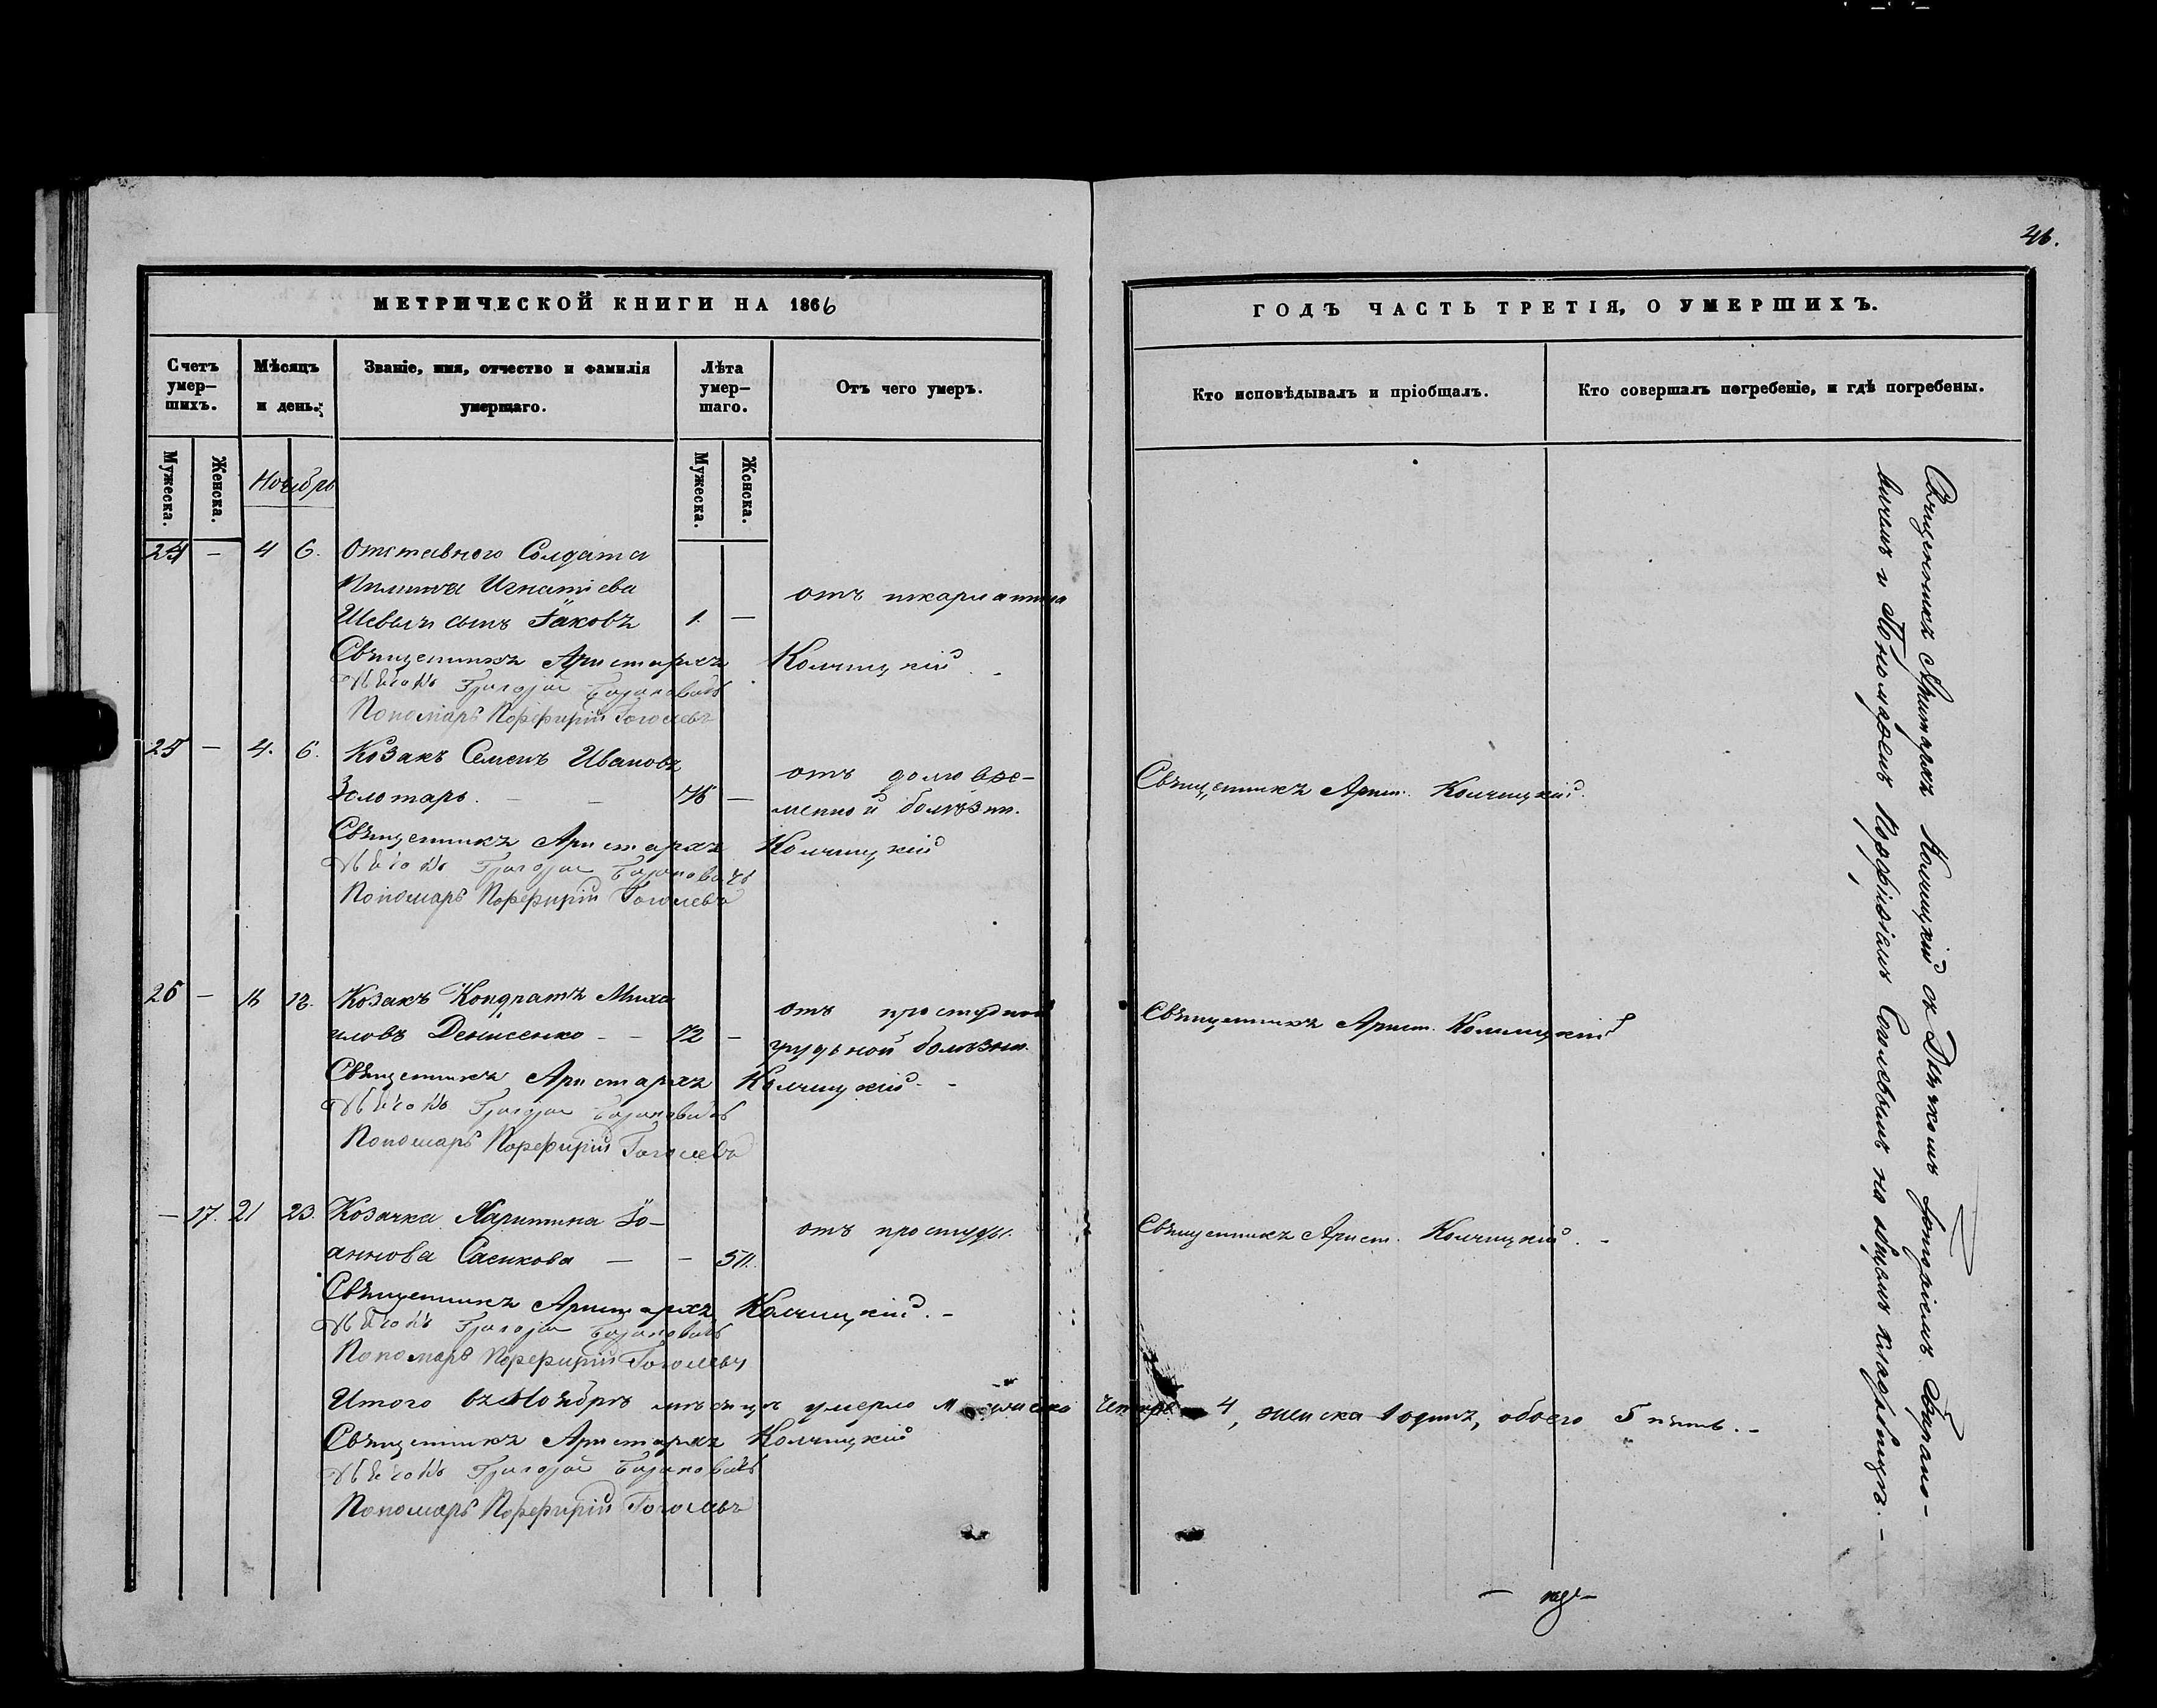 46.
МЕТРИЧЕСКОЙ КНИГИ НА 1866
ГОДЪ ЧАСТЬ ТРЕТІЯ, О УМЕРШИХЪ.
Счетъ умер-
шихъ.
Мѣсяцъ
и день.
Званіе, имя, отчество и фамилія
умершаго.
Лѣта
умер-
шаго.
Отъ чего умеръ.
Кто исповѣдывалъ и пріобщалъ.
Кто совершалъ погребеніе, и гдѣ погребены.
Мужеска.
Женска.
Ноябрь
Мужеска.
Женска.
24 — 4 6. Отставнаго Солдата
Игнатіева
сынъ Іаковъ 1. —
отъ шкарлатина
Священникъ Аристархъ Колчицкій
Григорій Барановичъ
Пономарь Порфирій Гоголевъ
25 — 4. 6. Козакъ Семенъ Ивановъ
Золотарь. — — —
отъ долговре-
менной болѣзни.
Священникъ Арист. Колчицкій.
Священникъ Аристархъ Колчицкій
Григорій Барановичъ
Пономарь Порфирій Гоголевъ
26 — Козакъ Кондратъ Миха
иловъ Денисенко — — 72 —
отъ простудной
грудной болѣзни.
Священникъ Арист. Колчицкій
Священникъ Аристархъ Колчицкій. -
Григорій Барановичъ
Пономарь Порфирій Гоголевъ
— 17. 21 23. Козачка Харитина Іо-
аннова Сасикова — —
отъ простуды.
Священникъ Арист. Колчицкій. -
Священникъ Аристархъ Колчицкій. -
Григорій Барановичъ
Пономарь Порфирій Гоголевъ
Итого въ Ноябрѣ мѣсяцѣ умерло мужеска четыре 4, женска 1 одинъ, обоего 5 пять. -
Священникъ Аристархъ Колчицкій
Григорій Барановичъ
Пономарь Порфирій Гоголевъ
Священникъ Аристархъ Колчицкій съ Дячкомъ Григоріемъ Барано-
вичемъ и Пономаремъ Порфиріемъ Гоголевымъ на общемъ кладбищѣ. -